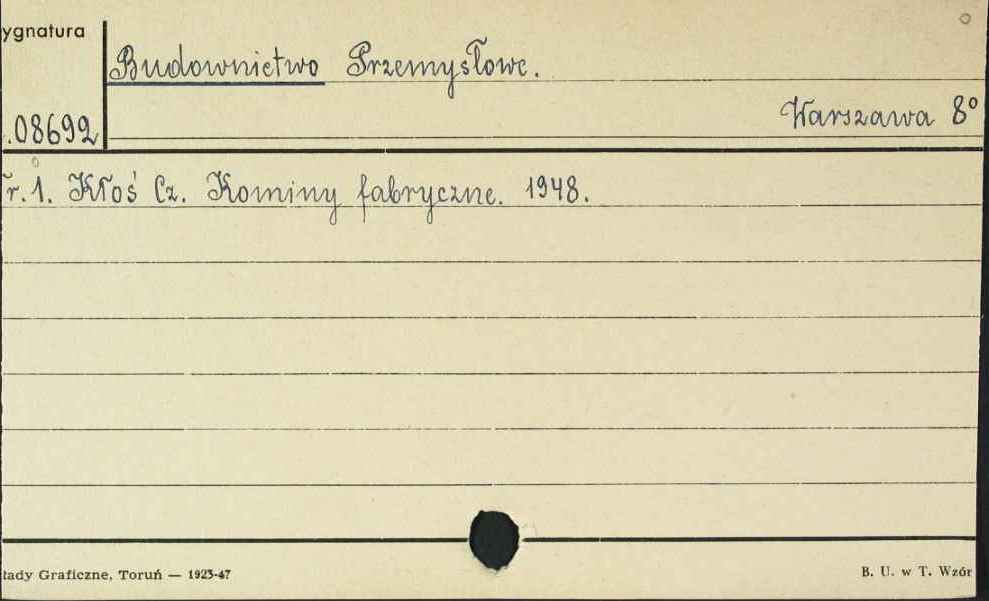 ygnatura
Budownictwo Przemysłowe.
Warszawa 8°
.08692
r. 1. Kłoś Cz. Kominy fabryczne. 1948.
łady Graficzne, Toruń — 1923-47
B. U. w T. Wzór